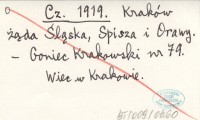 Cz. 1919. Kraków
żąda Śląska, Spisza i Orawy.
- Goniec Krakowski nr 79.
Wiec w Krakowie.